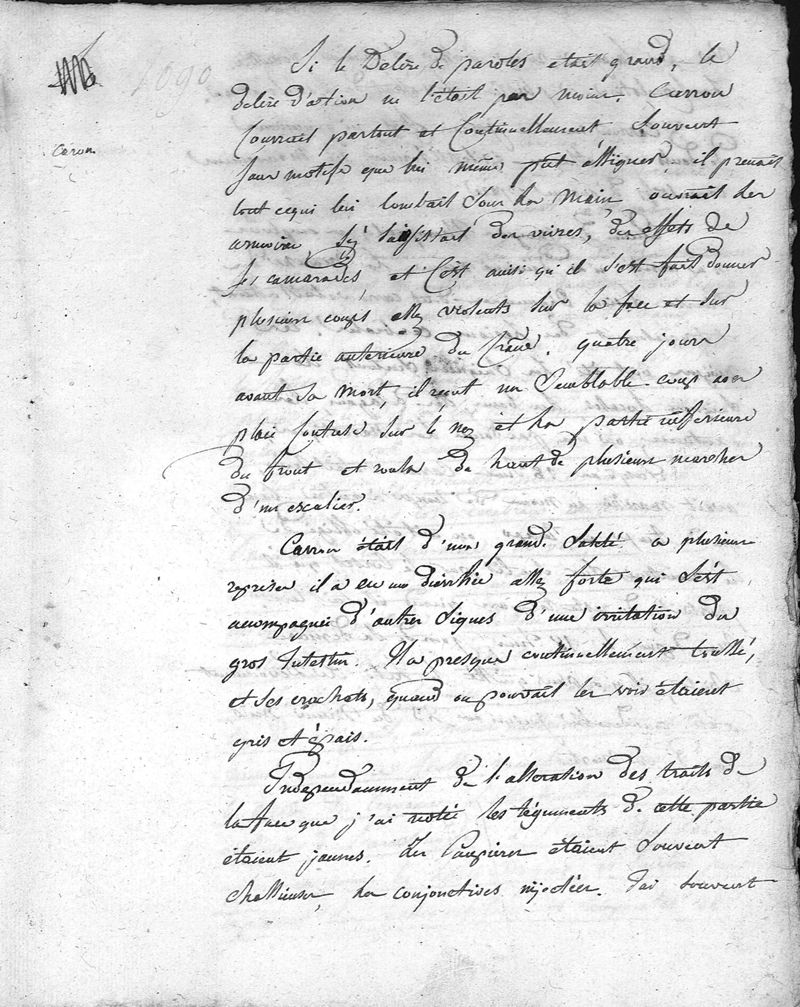 1090
Caron.
Si le Délire de paroles était grand, le
délire d'action ne l'était pas moins. Carron
Courrait partout et Continuellement Souvent
Sans motifs que lui même pût expliquer, il prenait
tout ce qui lui tombait Sous la Main, ouvrait les
armoires, s'y saisissait des vivres, des effets de
Ses camarades, et C'est ainsi qu'il s'est fait donner
plusieurs coups assez violents sur la face et sur
la partie antérieure du Crâne. quatre jours
avant Sa Mort, il reçut un Semblable coup avec
plaie Contuse sur le nez et la partie inférieure
du front et roula de haut de plusieurs marches
d'un escalier.
Carron était d'une grande Saleté. a plusieurs
reprises il a eu une diarrhée assez forte qui s'est
accompagnée d'autres Signes d'une irritation du
gros Intestin. Il a presque continuellement toussé,
et Ses crachats, quand on pouvait les voir étaient
gris et épais.
Independamment de l'altération des traits de
la face que j'ai notée les téguments de cette partie
étaient jaunes. Les Paupières étaient Souvent
chassieuses, les conjonctives injectées. J'ai souvent